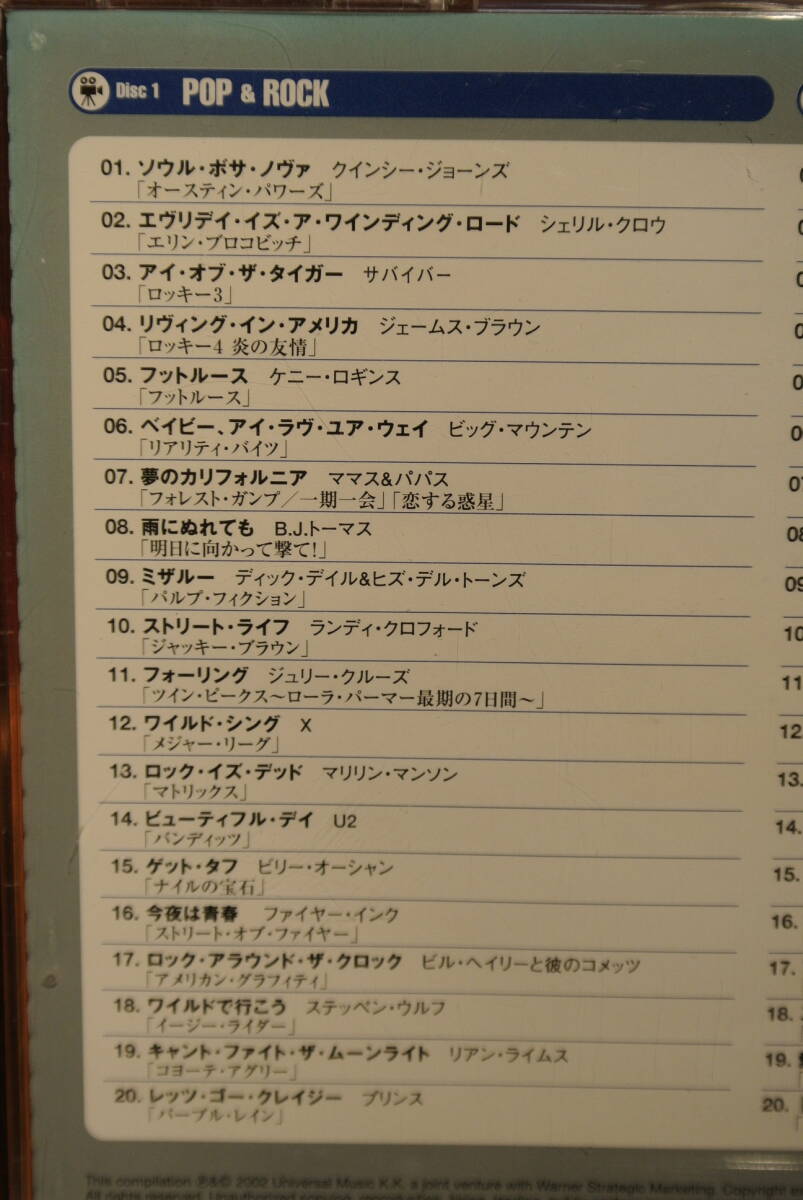 Disc 1 POP & ROCK
01. ソウル・ボサ・ノヴァ クインシー・ジョーンズ
「オースティン・パワーズ」
02. エヴリデイ・イズ・ア・ワインディング・ロード シェリル・クロウ
「エリン・ブロコビッチ」
03. アイ・オブ・ザ・タイガー サバイバー
「ロッキー3」
04. リヴィング・イン・アメリカ ジェームス・ブラウン
「ロッキー4 炎の友情」
05. フットルース ケニー・ロギンス
「フットルース」
06. ベイビー、アイ・ラヴ・ユア・ウェイ ビッグ・マウンテン
「リアリティ・バイツ」
07. 夢のカリフォルニア ママス&パパス
「フォレスト・ガンプ/一期一会」「恋する惑星」
08. 雨にぬれても B.J.トーマス
「明日に向かって撃て!」
09. ミザルー ディック・デイル&ヒズ・デル・トーンズ
「パルプ・フィクション」
10. ストリート・ライフ ランディ・クロフォード
「ジャッキー・ブラウン」
11. フォーリング ジュリー・クルーズ
「ツイン・ピークス〜ローラ・パーマー最期の7日間〜」
12. ワイルド・シング X
「メジャー・リーグ」
13. ロック・イズ・デッド マリリン・マンソン
「マトリックス」
14. ビューティフル・デイ U2
「バンディッツ」
15. ゲット・タフ ビリー・オーシャン
「ナイルの宝石」
16. 今夜は青春 ファイヤー・インク
「ストリート・オブ・ファイヤー」
17. ロック・アラウンド・ザ・クロック ビル・ヘイリーと彼のコメッツ
「アメリカン・グラフィティ」
18. ワイルドで行こう ステッペン・ウルフ
「イージー・ライダー」
19. キャント・ファイト・ザ・ムーンライト リアン・ライムス
「コヨーテ・アグリー」
20. レッツ・ゴー・クレイジー プリンス
「パープル・レイン」
07
08
09
10
11
12
13.
14.
15.
16.
17.
18.
19.
20.
This compilation ℗&© 2002 Universal Music K.K. a joint venture with Warner Strategic Marketing. Copyright
All rights reserved. Unauthorized